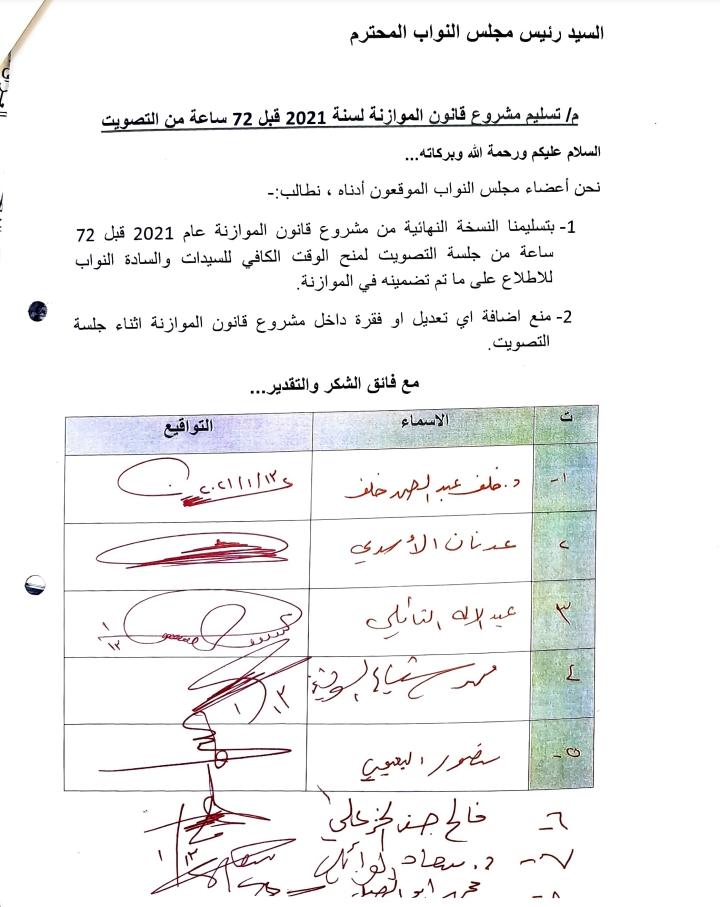 السيد رئيس مجلس النواب المحترم
م/ تسليم مشروع قانون الموازنة لسنة 2021 قبل 72 ساعة من التصويت
السلام عليكم ورحمة الله وبركاته...
نحن أعضاء مجلس النواب الموقعون أدناه ، نطالب:-
1- بتسليمنا النسخة النهائية من مشروع قانون الموازنة عام 2021 قبل 72
ساعة من جلسة التصويت لمنح الوقت الكافي للسيدات والسادة النواب
للاطلاع على ما تم تضمينه في الموازنة.
2- منع اضافة اي تعديل او فقرة داخل مشروع قانون الموازنة اثناء جلسة
التصويت.
مع فائق الشكر والتقدير...
ت الاسماء التواقيع
١- د. خلف عبد الصمد خلف ٢٠٢١/١/١٣
٢ عدنان الأسدي
٣ عبد الاله النائلي ١/١٣
٤ محمد شياع ١/١٣
٥- منصور البعيجي
٦- فالح حسن الخزعلي ١/١٣
٧- د. سعاد الوائلي
٨- محمد ابو